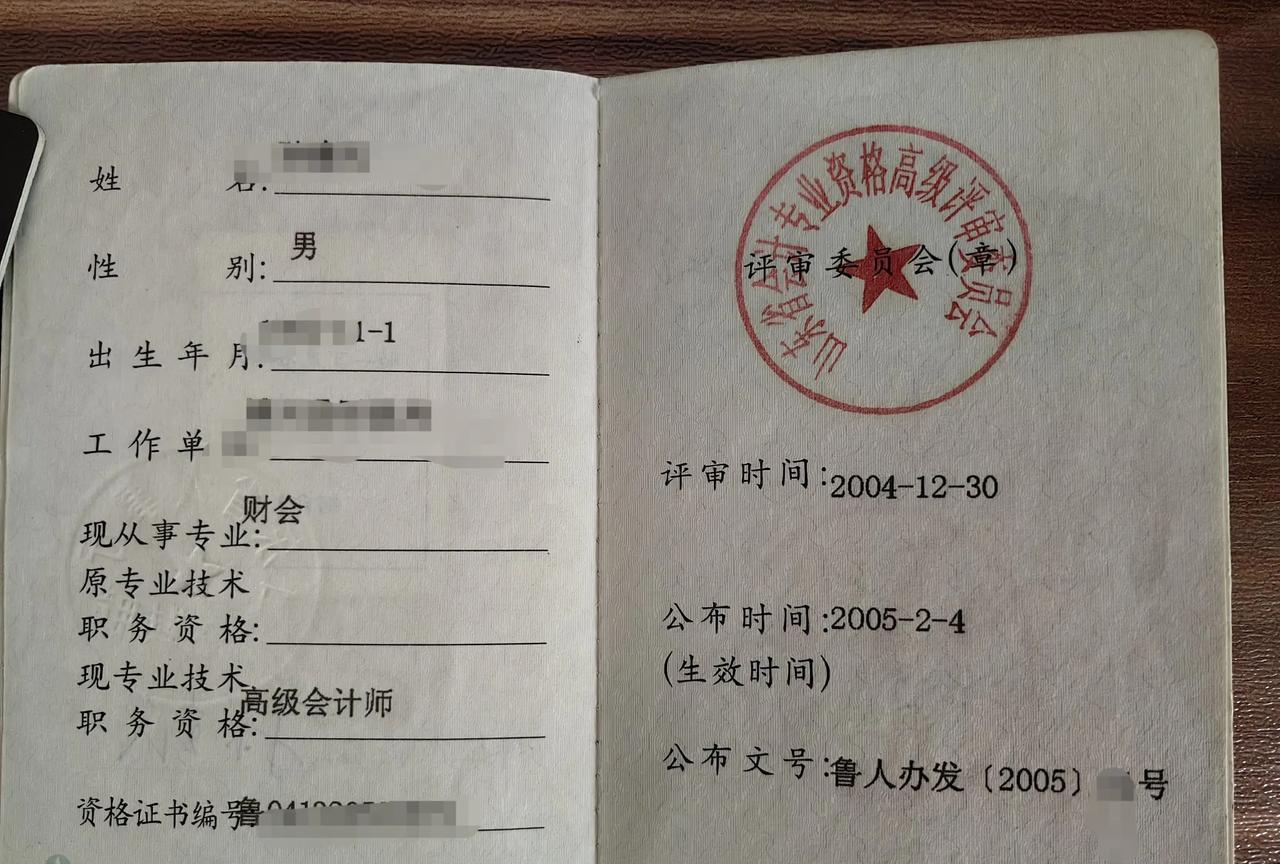 姓 名:
性 别: 男
出生年月: 1-1
工作单
现从事专业: 财会
原专业技术
职务资格:
现专业技术
职务资格: 高级会计师
资格证书编号 鲁
山东省会计专业资格高级评审委员会
评审委员会(章)
评审时间:2004-12-30
公布时间:2005-2-4
(生效时间)
公布文号:鲁人办发〔2005〕 号